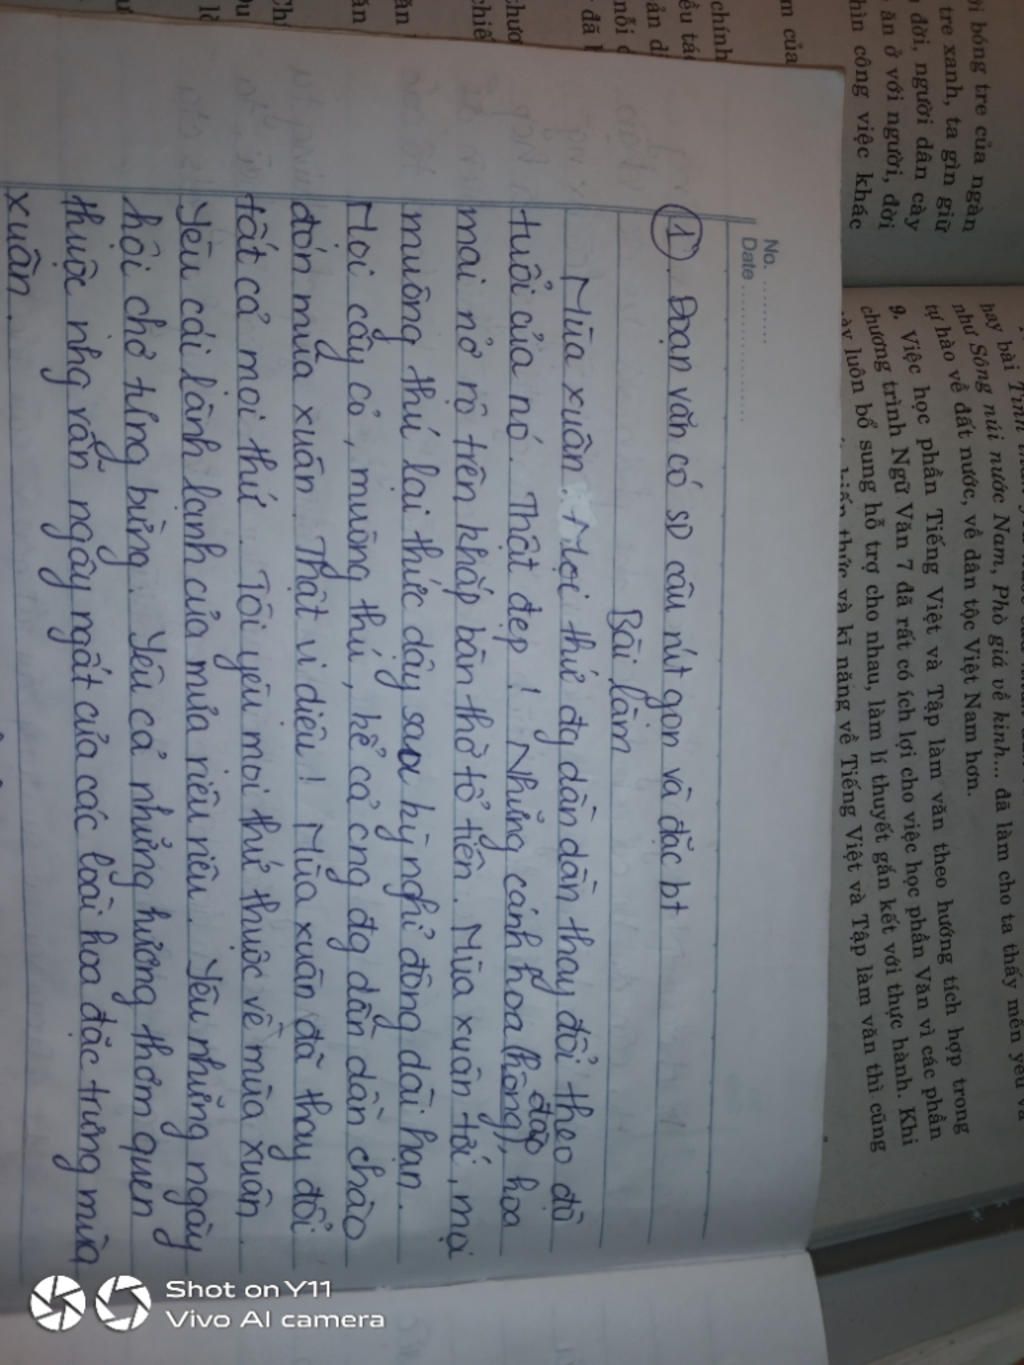 No. .........
Date ....................
① Đoạn văn có sD câu rút gọn và đặc bt
Bài làm
Mùa xuân. Mọi thứ đg dần dần thay đổi theo độ
tuổi của nó. Thật đẹp! Những cánh hoa (hồng), đào hoa
mai nở rộ trên khắp bàn thờ tổ tiên. Mùa xuân tới, mọi
muông thú lại thức dậy sau kỳ nghỉ đông dài hạn.
Mọi cây cỏ, muông thú, kể cả cng đg dần dần chào
đón mùa xuân. Thật vi diệu! Mùa xuân đã thay đổi
tất cả mọi thứ. Tôi yêu mọi thứ thuộc về mùa xuân.
Yêu cái lành lạnh của mưa riêu riêu. Yêu những ngày
hội chợ tưng bừng. Yêu cả những hương thơm quen
thuộc nhg vẫn ngây ngất của các loài hoa đặc trưng mùa
xuân.
bóng tre của ngàn
tre xanh, ta gìn giữ
đời, người dân cày
ăn ở với người, đời
công việc khác
hay bài
như Sông núi nước Nam, Phò giá về kinh... đã làm cho ta thấy mến yêu và
tự hào về đất nước, về dân tộc Việt Nam hơn.
9. Việc học phần Tiếng Việt và Tập làm văn theo hướng tích hợp trong
chương trình Ngữ Văn 7 đã rất có ích lợi cho việc học phần Văn vì các phần
luôn bổ sung hỗ trợ cho nhau, làm lí thuyết gắn kết với thực hành. Khi
kiến thức và kĩ năng về Tiếng Việt và Tập làm văn thì cũng
của
chính
Shot on Y11
Vivo AI camera